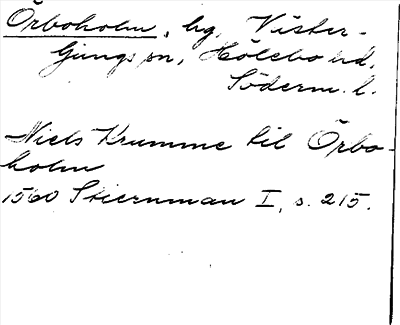 Örboholm, hg, Väster-
Ljungs sn, Hölebo hd,
Söderm. l.
Niels Krumme til Örbo-
holm
1560 Stiernman I, s. 215.